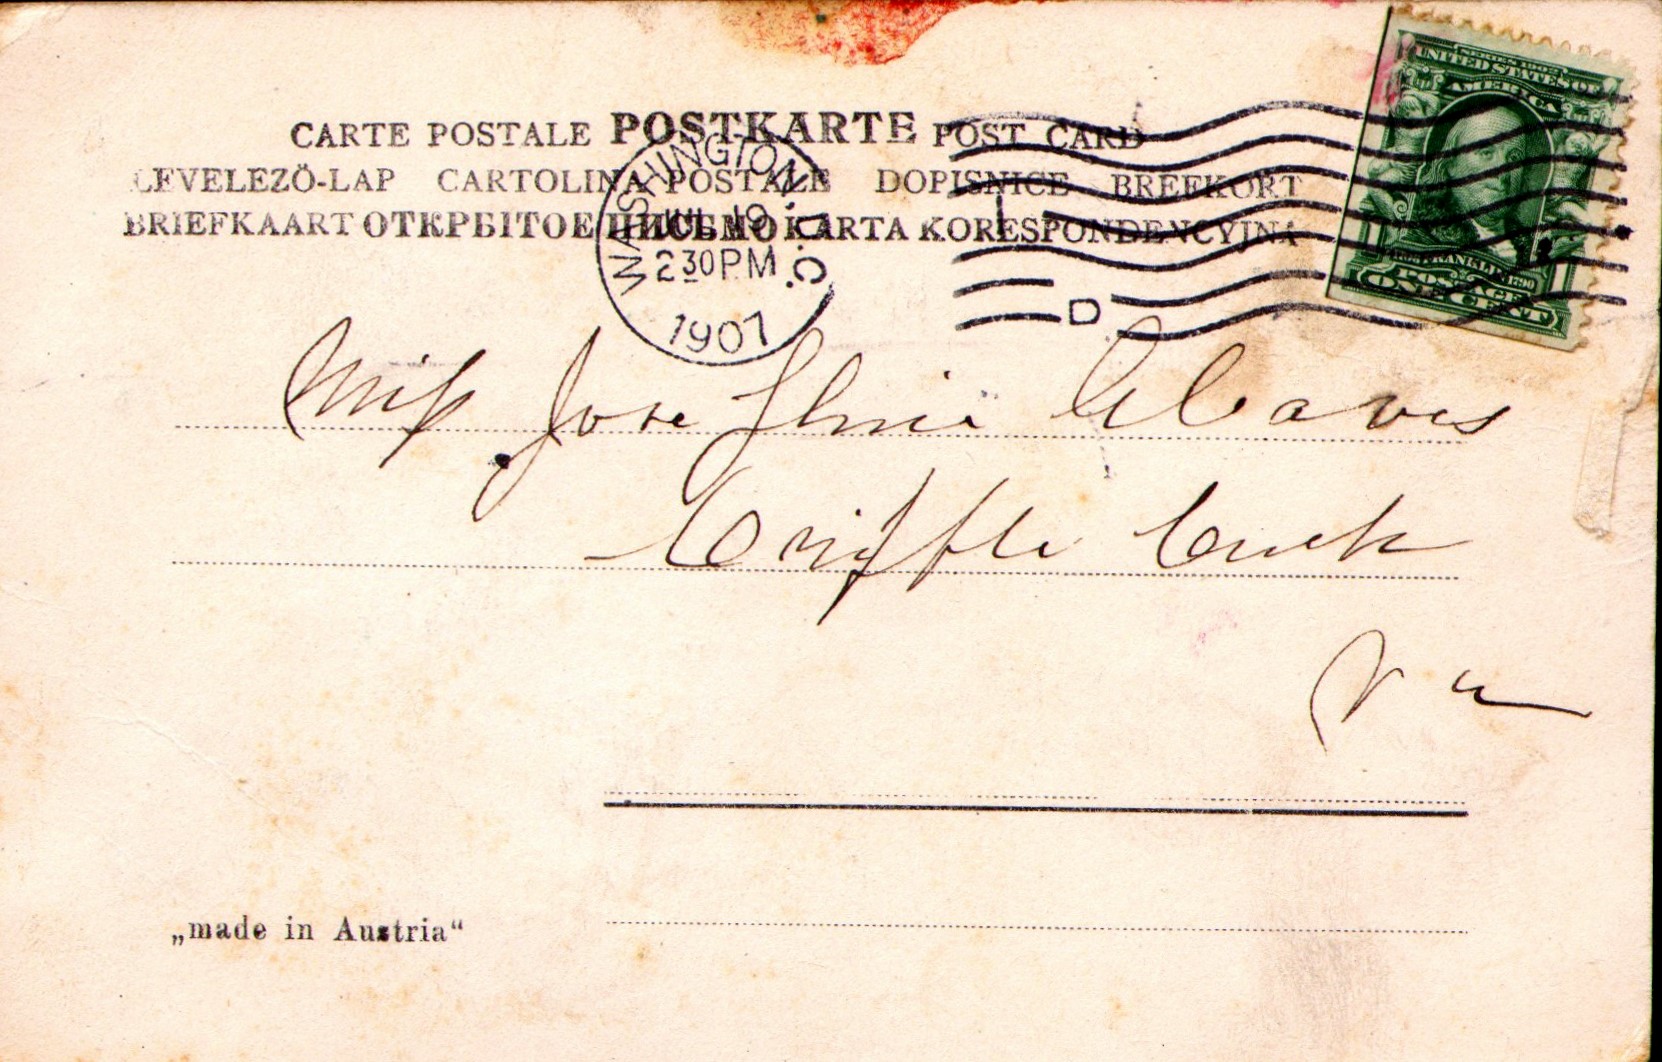 CARTE POSTALE POSTKARTE POST CARD
LEVELEZŐ-LAP CARTOLINA POSTALE DOPISNICE BREFKORT
BRIEFKAART ОТКРЫТОЕ ПИСЬМО KARTA KORESPONDENCYJNA
WASHINGTON, D.C.
JUL 19
2 30 PM
1907
D
SERIES 1902
UNITED STATES OF
AMERICA
FRANKLIN
POSTAGE
ONE CENT
Miss Josephine Cleaves
Cripple Creek
Va
„made in Austria“